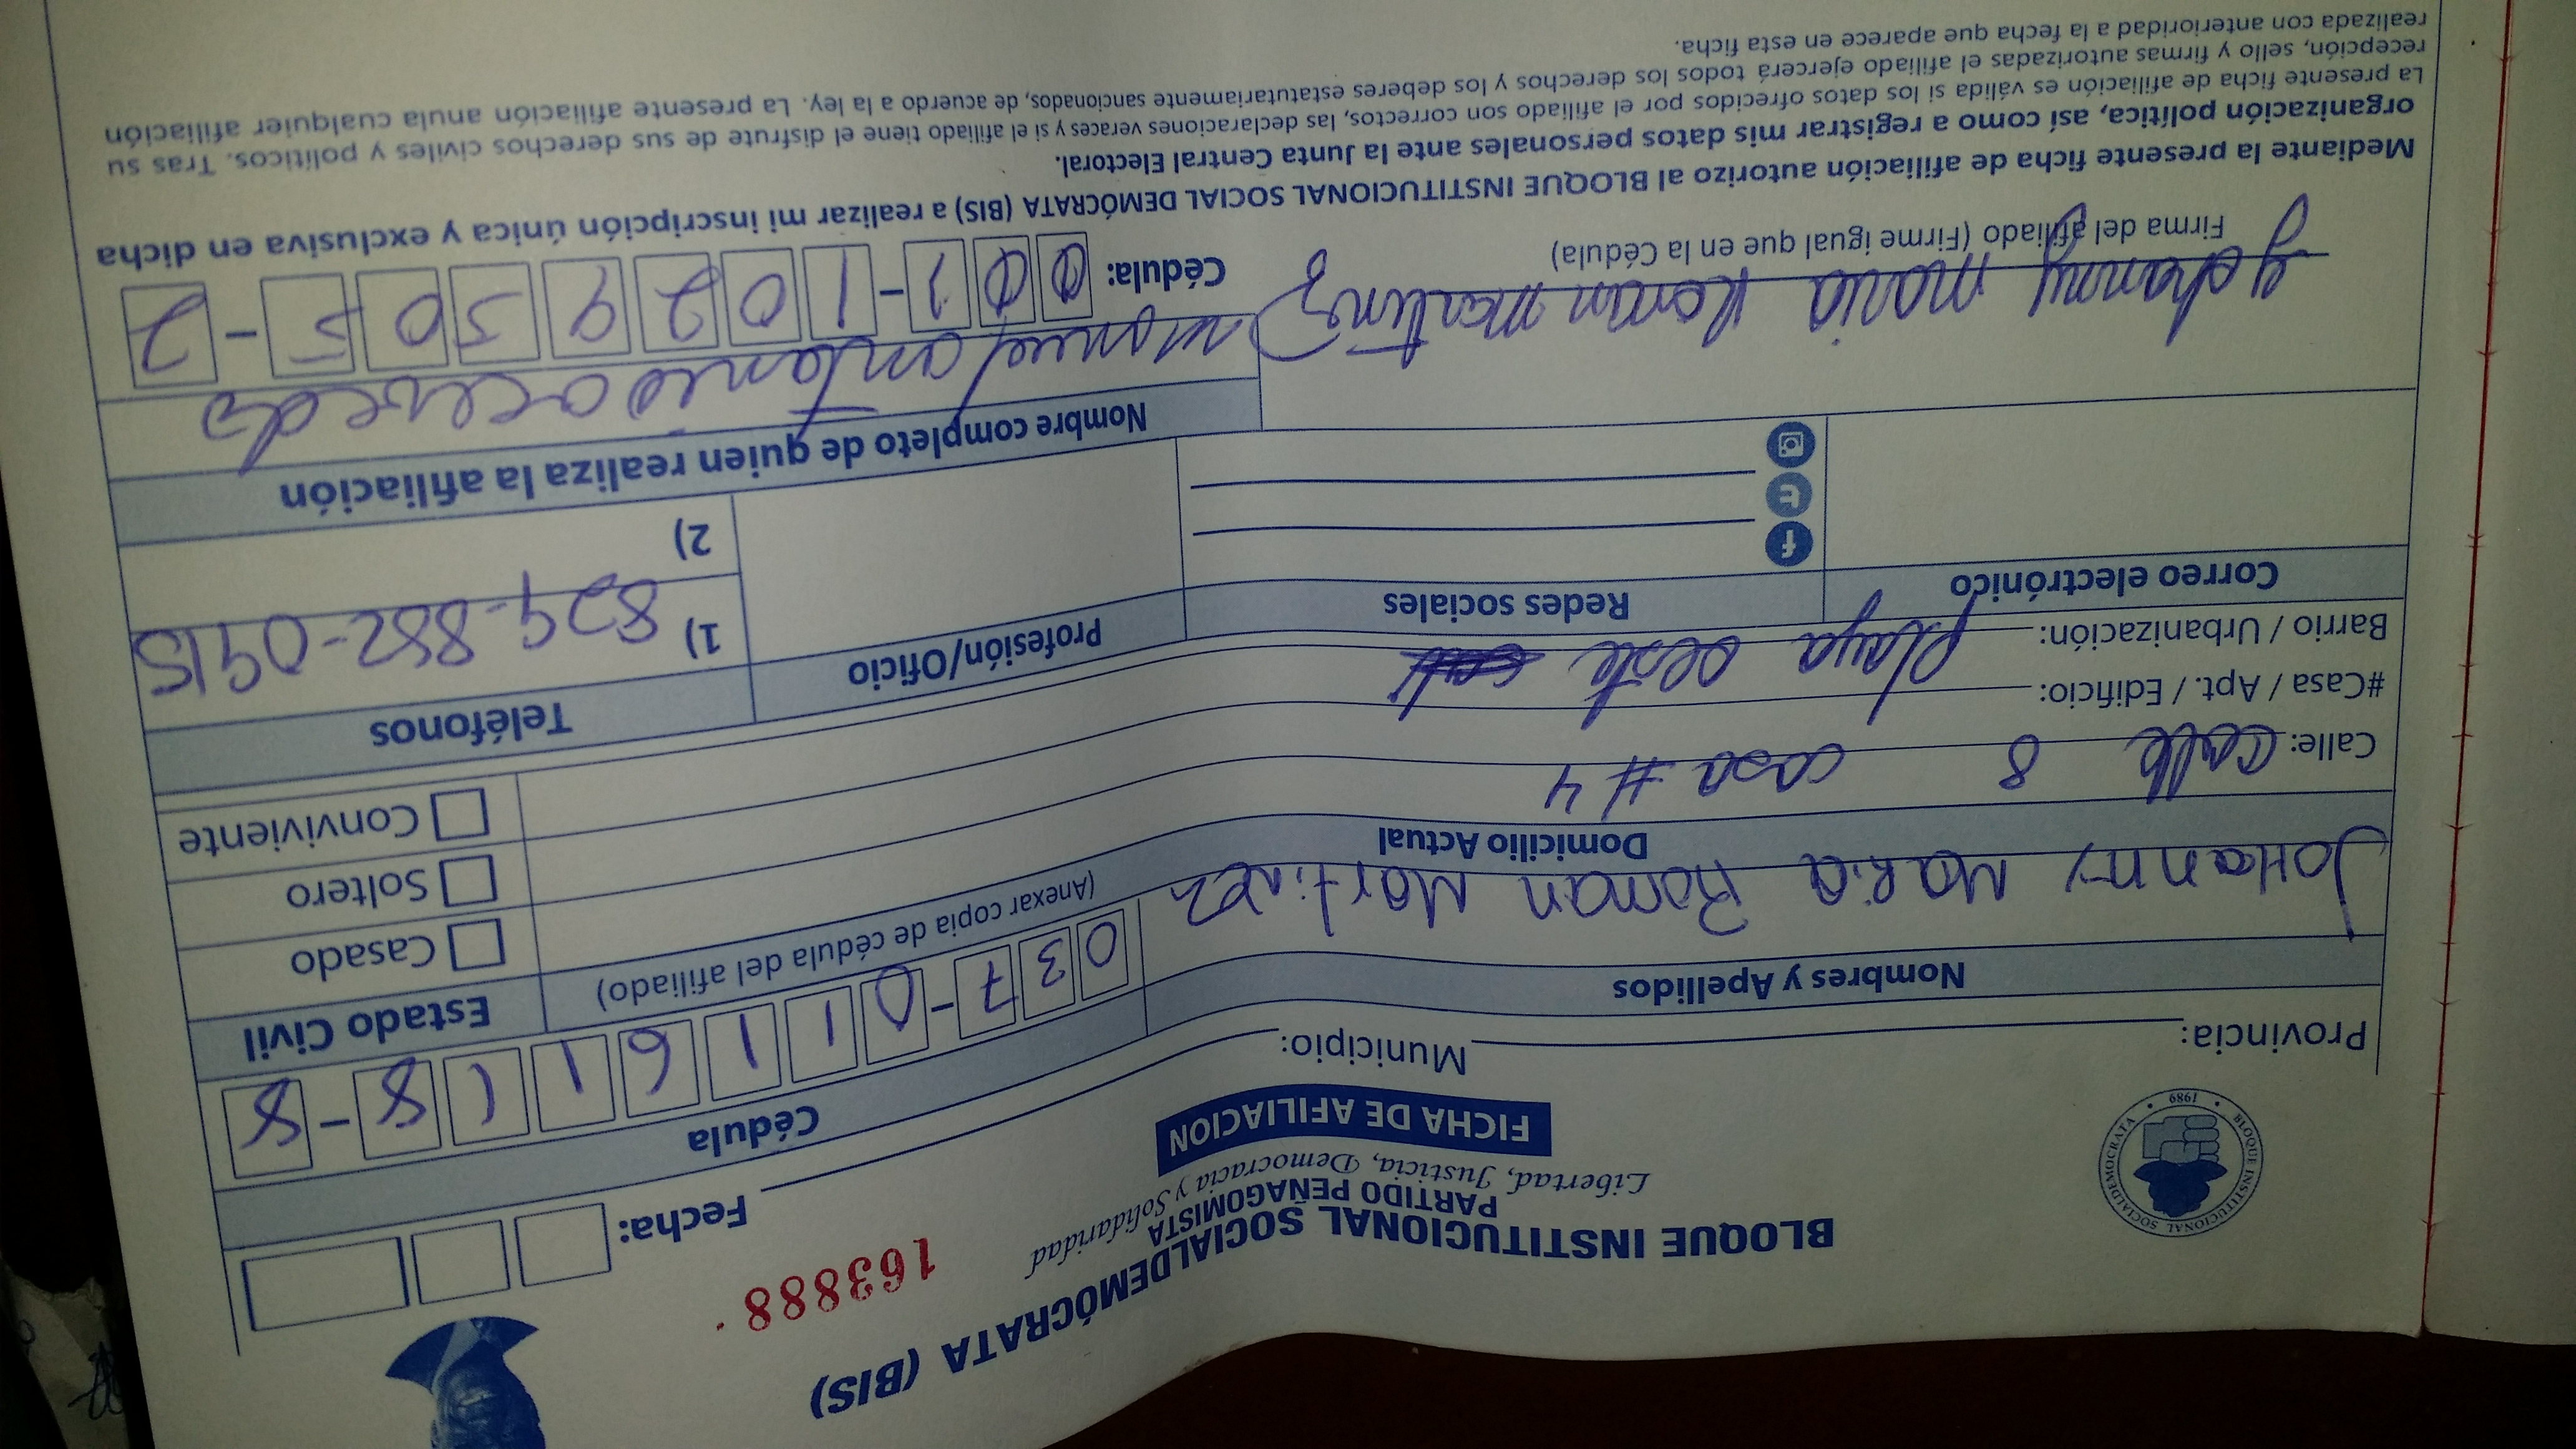 BLOQUE INSTITUCIONAL SOCIALDEMÓCRATA (BIS)
PARTIDO PEÑAGOMISTA
Libertad, Justicia, Democracia y Solidaridad
FICHA DE AFILIACION
BLOQUE INSTITUCIONAL SOCIALDEMOCRATA • 1989 •
163888
Fecha:
Provincia: Municipio:
Nombres y Apellidos
Cédula
JoHanny Maria Roman Martinez
037-0111611 8-8
(Anexar copia de cédula del afiliado)
Estado Civil
Casado
Soltero
Conviviente
Domicilio Actual
Calle: calle 8 casa # 4
#Casa / Apt. / Edificio:
Barrio / Urbanización: playa oeste
Correo electrónico
Redes sociales
Profesión/Oficio
Teléfonos
1) 829-882-0915
2)
Nombre completo de quien realiza la afiliación
manuel antonio acevedo
yohanny maria Roman martinez
Firma del afiliado (Firme igual que en la Cédula)
Cédula: 001-1029505-2
Mediante la presente ficha de afiliación autorizo al BLOQUE INSTITUCIONAL SOCIAL DEMÓCRATA (BIS) a realizar mi inscripción única y exclusiva en dicha
organización política, así como a registrar mis datos personales ante la Junta Central Electoral.
La presente ficha de afiliación es válida si los datos ofrecidos por el afiliado son correctos, las declaraciones veraces y si el afiliado tiene el disfrute de sus derechos civiles y políticos. Tras su
recepción, sello y firmas autorizadas el afiliado ejercerá todos los derechos y los deberes estatutariamente sancionados, de acuerdo a la ley. La presente afiliación anula cualquier afiliación
realizada con anterioridad a la fecha que aparece en esta ficha.